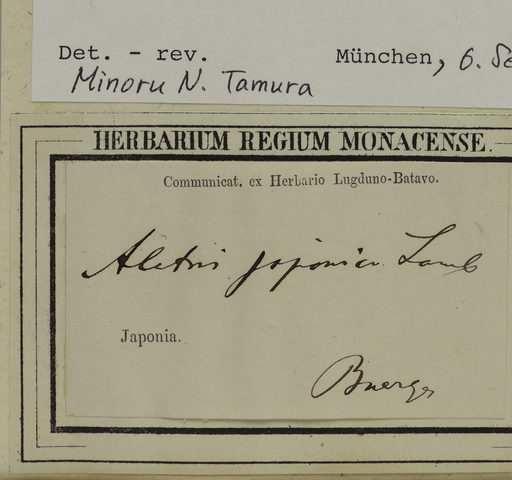 Det. - rev. München, 6.
Minoru N. Tamura
HERBARIUM REGIUM MONACENSE.
Communicat. ex Herbario Lugduno-Batavo.
Aletris japonica Lamb
Japonia.
Buerger